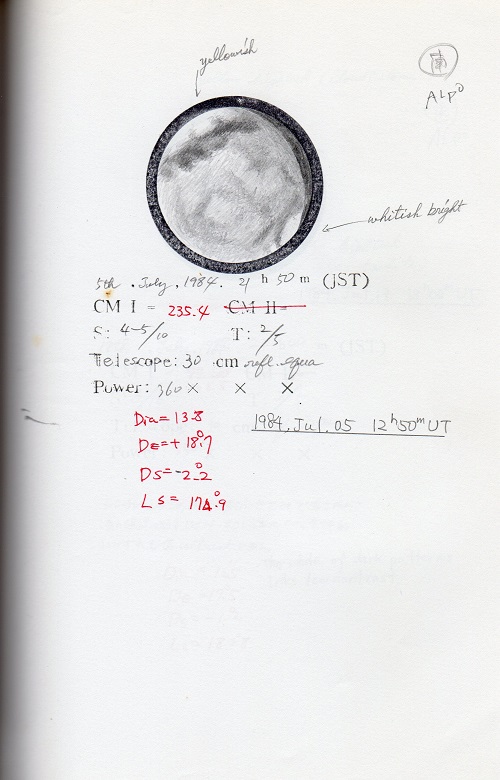 yellowish
ALPO
whitish bright
5th. July, 1984. 21 h 50 m (JST)
CM I = 235.4 CM II=
S: 4-5/10 T: 2/5
Telescope: 30 cm refl. equa
Power: 360× × ×
Dia = 13.8
1984. Jul. 05 12h50m UT
DE = +18°.7
DS = -2°.2
LS = 174°.9